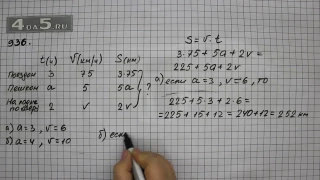 4DA5.RU
936.
t(ч) V(км/ч) S(км)
Поездом 3 75 3·75
Пешком а 5 5а
На коне по озеру 2 v 2v
?
а) a=3, v=6
б) a=4, v=10
S=v·t
3·75+5a+2v=
225+5a+2v
а) если a=3, v=6, то
225+5·3+2·6=
=225+15+12=240+12=252 км
б) если